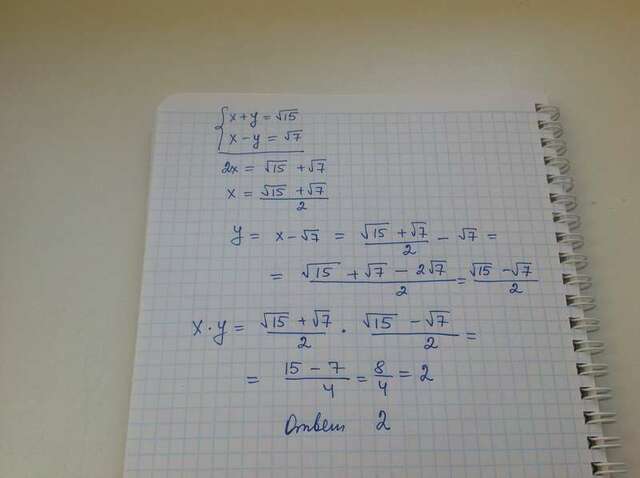 { x + y = √15
x − y = √7
2x = √15 + √7
x = (√15 + √7)/2
y = x − √7 = (√15 + √7)/2 − √7 =
= (√15 + √7 − 2√7)/2 = (√15 − √7)/2
x · y = (√15 + √7)/2 · (√15 − √7)/2 =
= (15 − 7)/4 = 8/4 = 2
Ответ 2